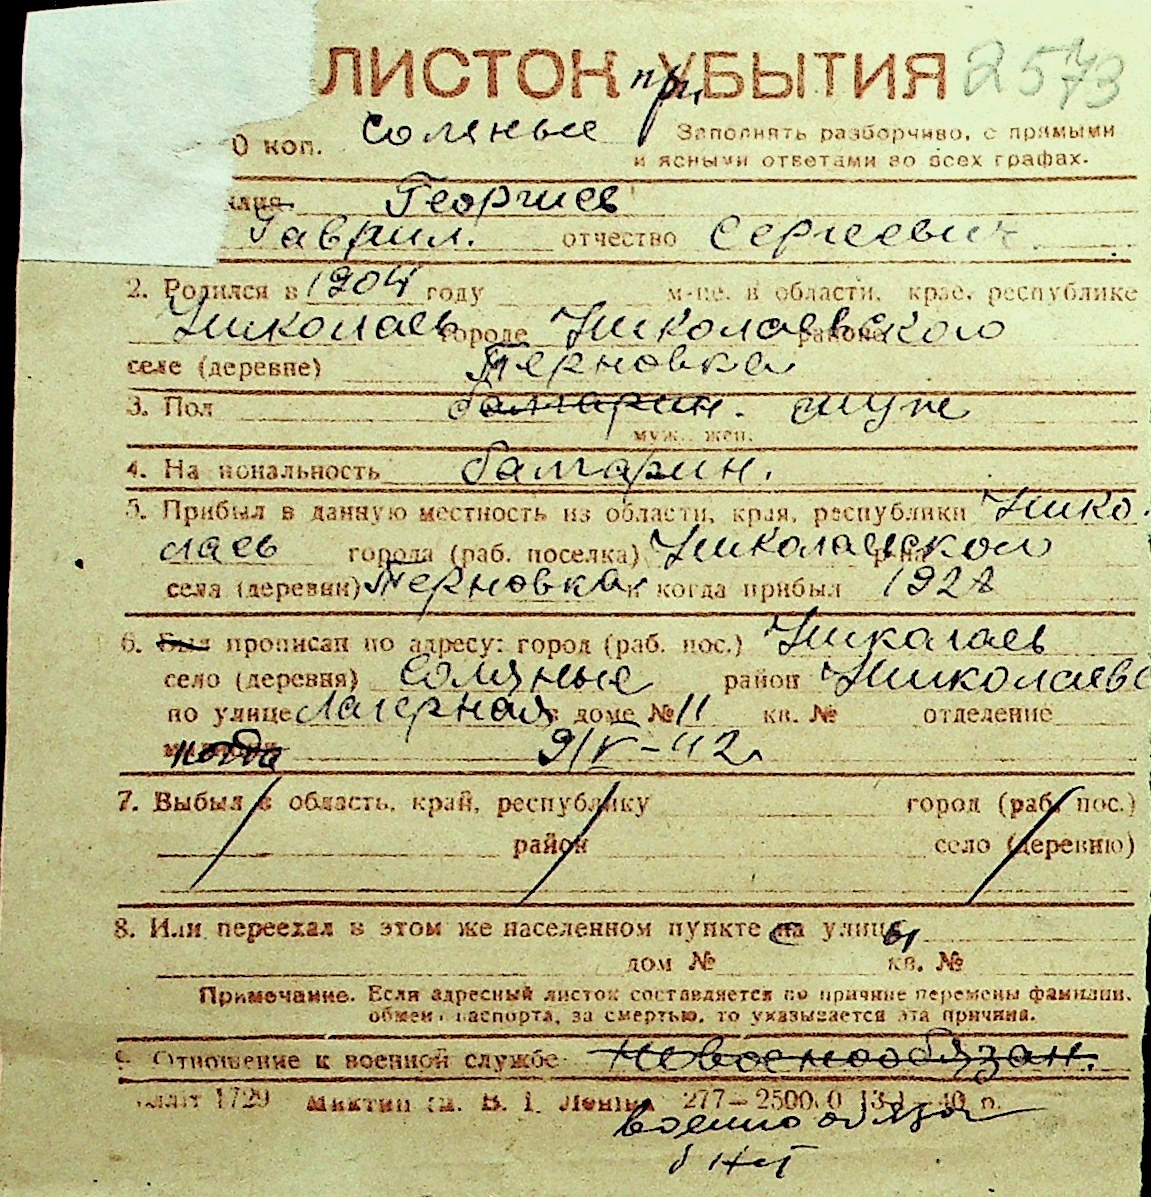 ЛИСТОК при УБЫТИЯ 2573
0 коп. Соляные Заполнять разборчиво, с прямыми
и ясными ответами во всех графах.
илия Георгиев
Гаврил. отчество Сергеевич
2. Родился в 1904 году м-це, в области, крае, республике
Николаев городе Николаевского районе
селе (деревне) Терновка
3. Пол болгарин. муж
муж., жен.
4. На иональность болгарин.
5. Прибыл в данную местность из области, края, республики Нико
лаев города (раб. поселка) Николаевского р-на
села (деревни) Терновка и когда прибыл 1928
6. Был прописан по адресу: город (раб. пос.) Николаев
село (деревня) Соляные район Николаевс
по улице Лагерная в доме № 11 кв. № отделение
когда 9/V-42
7. Выбыл в область, край, республику город (раб. пос.)
район село (деревню)
8. Или переехал в этом же населенном пункте с улицы
дом № кв. №
Примечание. Если адресный листок составляется по причине перемены фамилии,
обмен паспорта, за смертью, то указывается эта причина.
9. Отношение к военной службе Невоеннообязан.
1729 В. І. Леніна 277—2500 0 13-І—40 р.
военнообяза